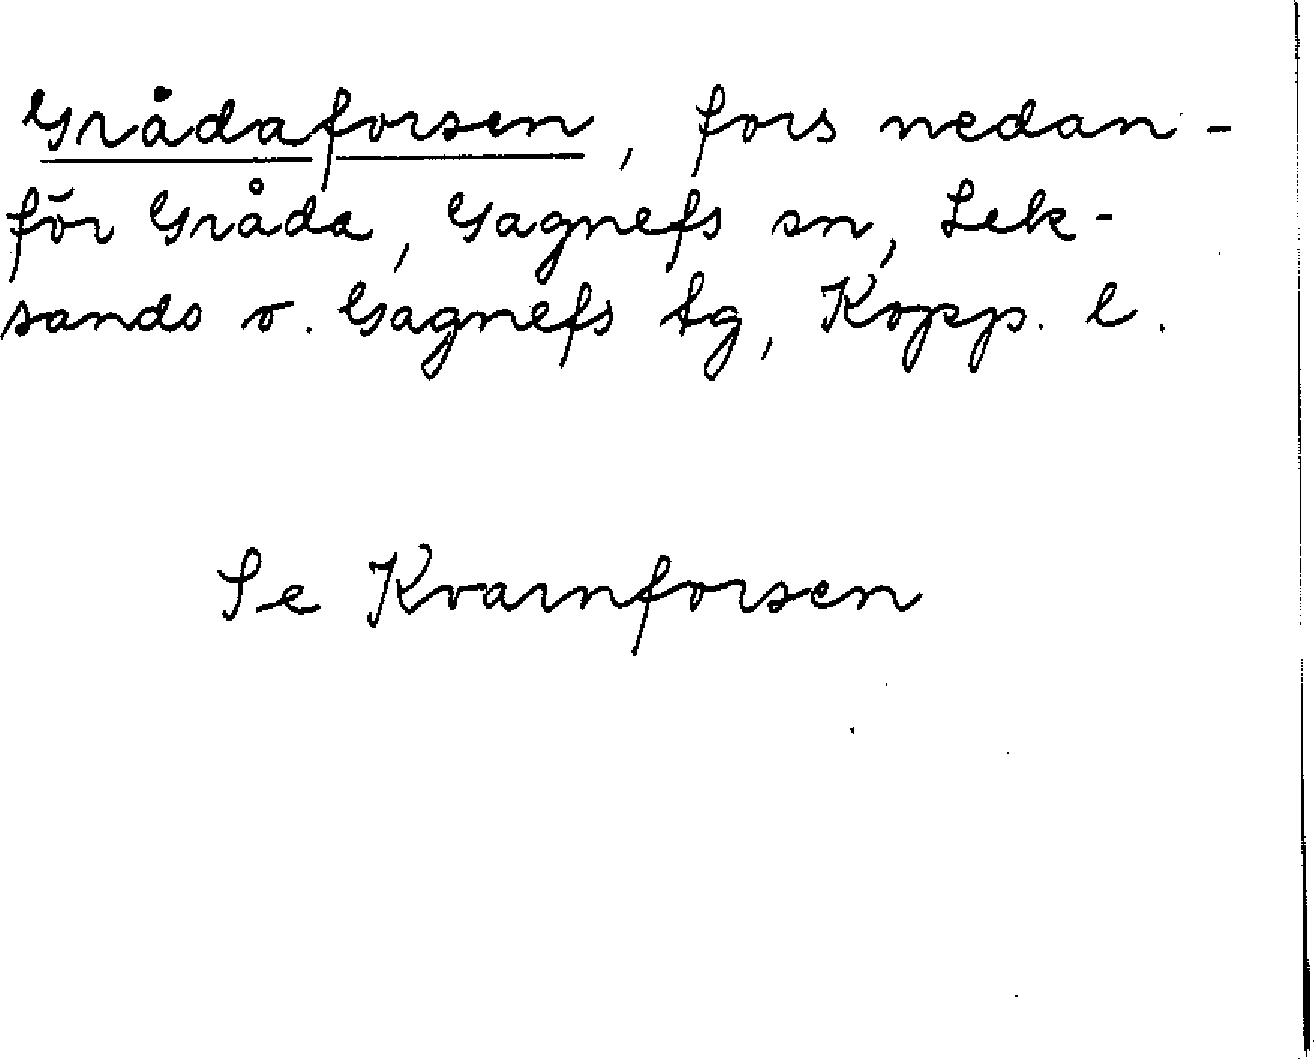 Grådaforsen, fors nedan-
för Gråda, Gagnefs sn, Lek-
sands o. Gagnefs tg, Kopp. l.
Se Kvarnforsen